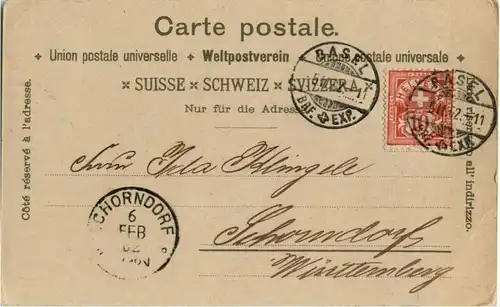 Carte postale.
✦ Union postale universelle ✦ Weltpostverein ✦ Unione postale universale ✦
× SUISSE × SCHWEIZ × SVIZZERA ×
Nur für die Adresse
Côté réservé à l'adresse.
all' indirizzo.
BASEL
BRF. EXP.
HELVETIA
10
BASEL
BRF. EXP.
Klingele
Schorndorf
Württemberg
SCHORNDORF
6
FEB
02